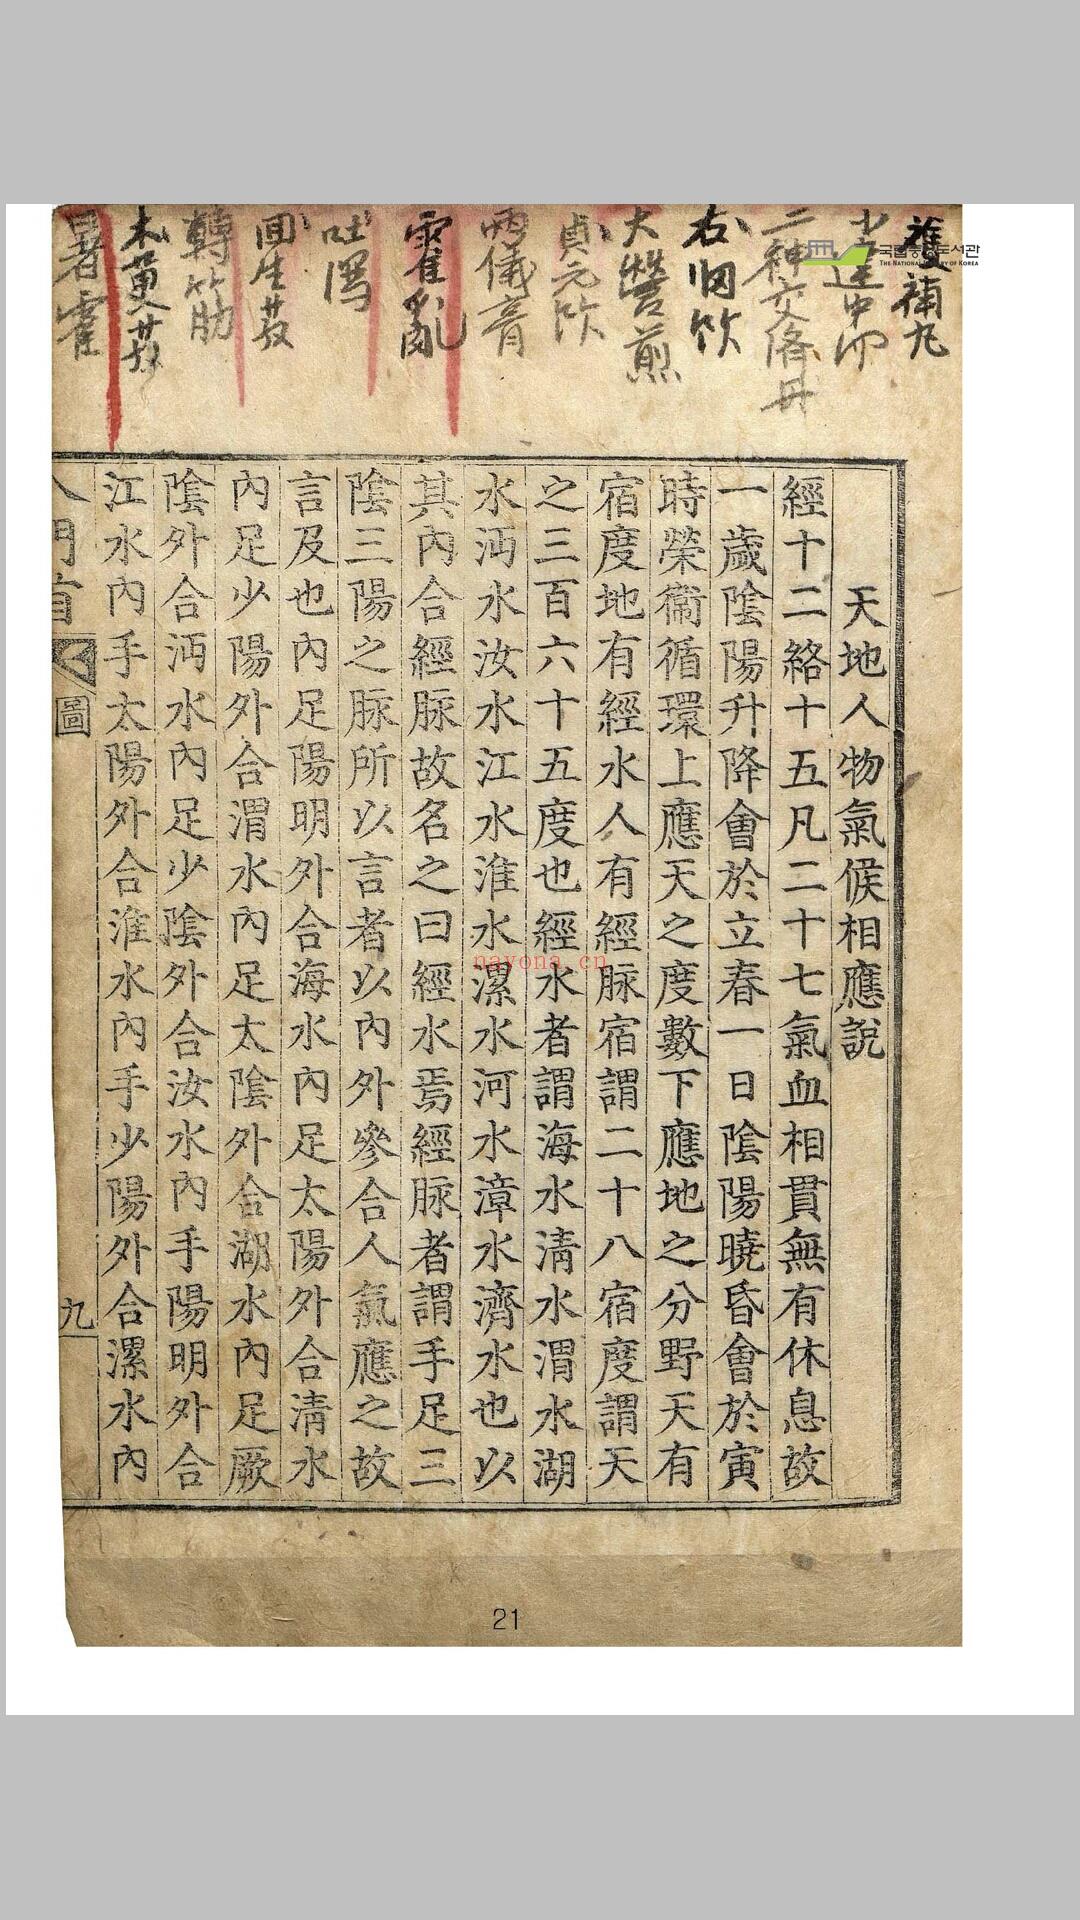 天地人物氣候相應說
經十二絡十五凡二十七氣血相貫無有休息故
一歲陰陽升降會於立春一日陰陽曉昏會於寅
時榮衞循環上應天之度數下應地之分野天有
宿度地有經水人有經脉宿謂二十八宿度謂天
之三百六十五度也經水者謂海水淸水渭水湖
水沔水汝水江水淮水漯水河水漳水濟水也以
其內合經脉故名之曰經水焉經脉者謂手足三
陰三陽之脉所以言者以內外參合人氣應之故
言及也內足陽明外合海水內足太陽外合淸水
內足少陽外合渭水內足太陰外合湖水內足厥
陰外合沔水內足少陰外合汝水內手陽明外合
江水內手太陽外合淮水內手少陽外合漯水內
入門首
圖
九
補丸
二神交濟丹
右归飮
大營煎
貞元飮
兩儀膏
霍亂
吐瀉
回生散
轉筋
木萸散
暑霍
국립중앙도서관
THE NATIONAL LIBRARY OF KOREA
nayona.cn
21